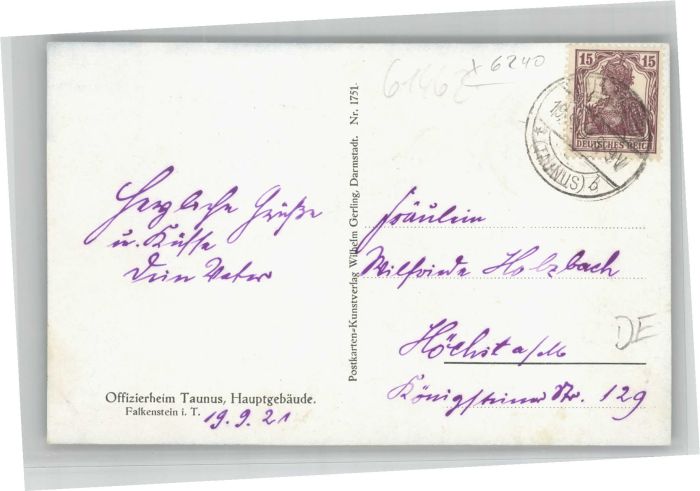 61462
x 6240
15 15
DEUTSCHES REICH
(TAUNUS) b
Herzliche Grüße
u. Küsse
Dein Vater
Offizierheim Taunus, Hauptgebäude.
Falkenstein i. T.
19.9.21
Postkarten-Kunstverlag Wilhelm Gerling, Darmstadt. Nr. 1751.
Fräulein
Wilfriede Holzbach
Höchst a/M
Königsteiner Str. 129
DE